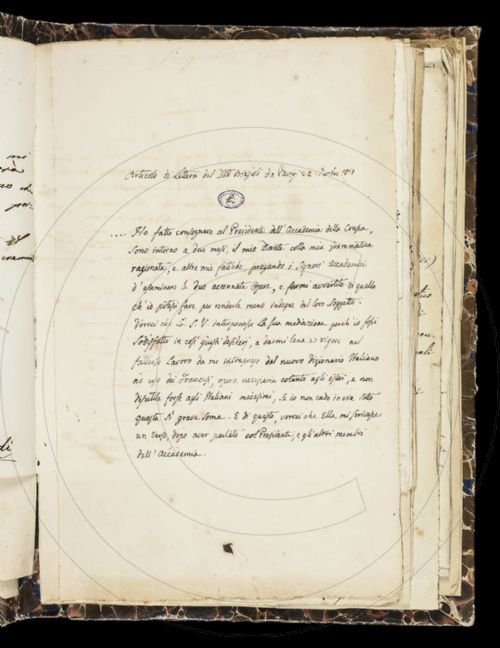 Articolo di Lettera del Biagioli da Parigi 22
.... Ho fatto consegnare al Presidente dell'Accademia della Crusca,
sono intorno a due mesi, il mio Dante colla mia Grammatica
ragionata, e altre mie fatiche, pregando i Signori Accademici
d'esaminare le due accennate Opere, e farmi avvertito di quello
ch'io potessi fare per renderle meno indegne del loro Soggetto.
Vorrei che L. S. V. interponesse la Sua mediazione, perch'io fossi
Sodisfatto in così giusti desideri, a darmi lena e vigore nel
faticoso Lavoro da me intrapreso del nuovo Dizionario Italiano
ad uso dei Francesi, opera necessaria cotanto agli esteri, e non
disutile forse agli Italiani medesimi, se io non cado in via sotto
questa sì grave soma. E di questo, vorrei che Ella mi scrivesse
un verso, dopo aver parlato col Presidente, e gli altri membri
dell'Accademia.